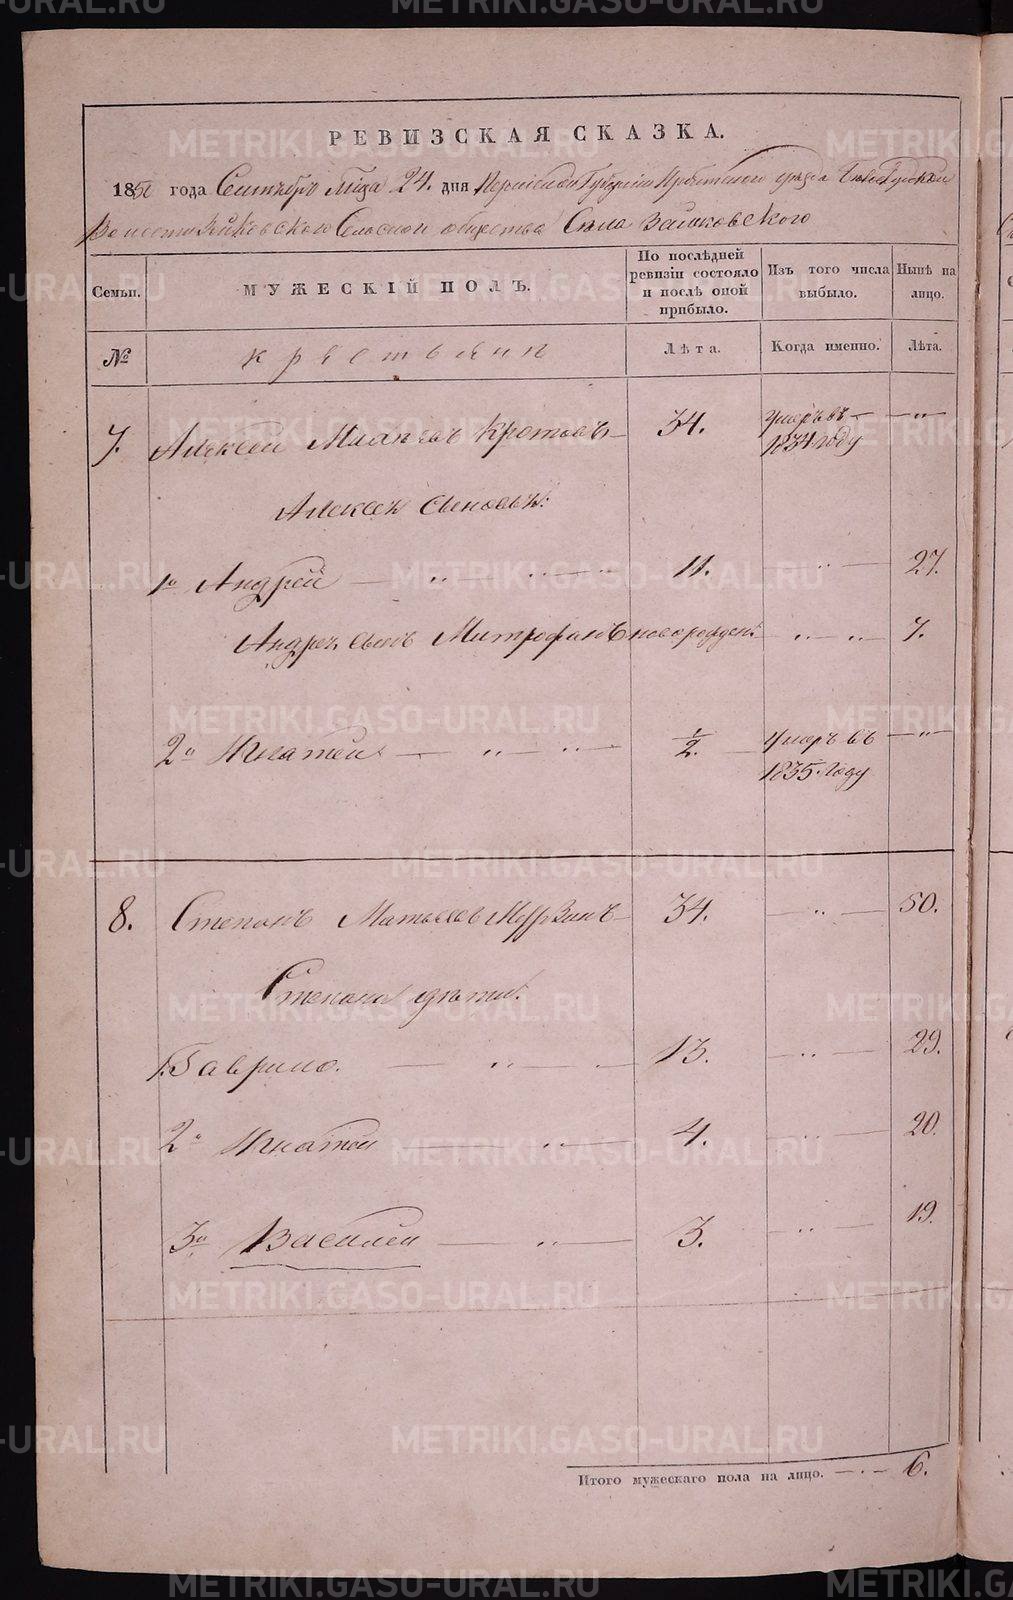 METRIKI.GASO-URAL.RU
РЕВИЗСКАЯ СКАЗКА.
1850 года Сентября Мца 24. дня Пермской Губернии Ирбитского уезда
Волости Зайковского Сельского общества Села Зайковского
Семьи.
МУЖЕСКІЙ ПОЛЪ.
По послѣдней ревизіи состояло и послѣ оной прибыло.
Изъ того числа выбыло.
Нынѣ на лицо.
№
крестьянъ
Лѣта.
Когда именно.
Лѣта.
7. Алексей Кротовъ 34. умеръ въ 1834 году — " —
Алексея сыновья:
1й Андрей — " — 11. " — 27.
Андрея сынъ Митрофанъ новорожден. " — " — 7.
2й Игнатей — " — " — 1/2. умеръ въ 1835 году — " —
8. Степанъ Матвеевъ Мурзинъ 34. — " — 50.
Степана дети:
1. Гаврило. — " — 13. — " — 29.
2й Игнатей — " — 4. — " — 20.
3й Василей — " — 3. — " — 19.
Итого мужескаго пола на лицо. — " — 6.